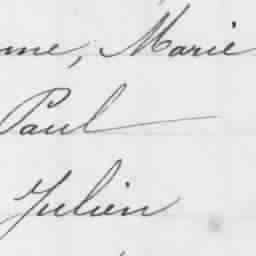 me, Marie
Paul
Julien